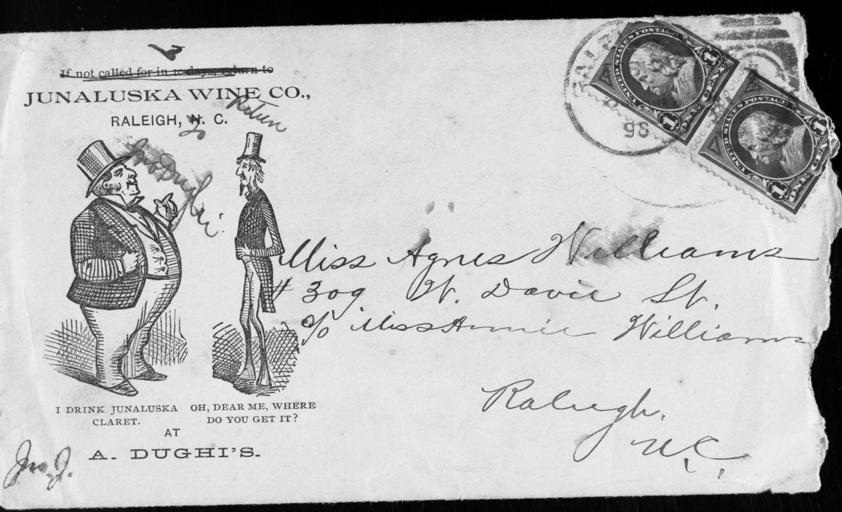 If not called for in 10 days return to
JUNALUSKA WINE CO.,
RALEIGH, N. C.
Return
to
I DRINK JUNALUSKA
CLARET.
OH, DEAR ME, WHERE
DO YOU GET IT?
AT
A. DUGHI'S.
Jno. J.
98
UNITED STATES POSTAGE
1 ONE CENT 1
UNITED STATES POSTAGE
1 ONE CENT 1
Miss Agnes Williams
# 309 W. Davie St.
c/o Miss Annie Williams
Raleigh,
N.C.